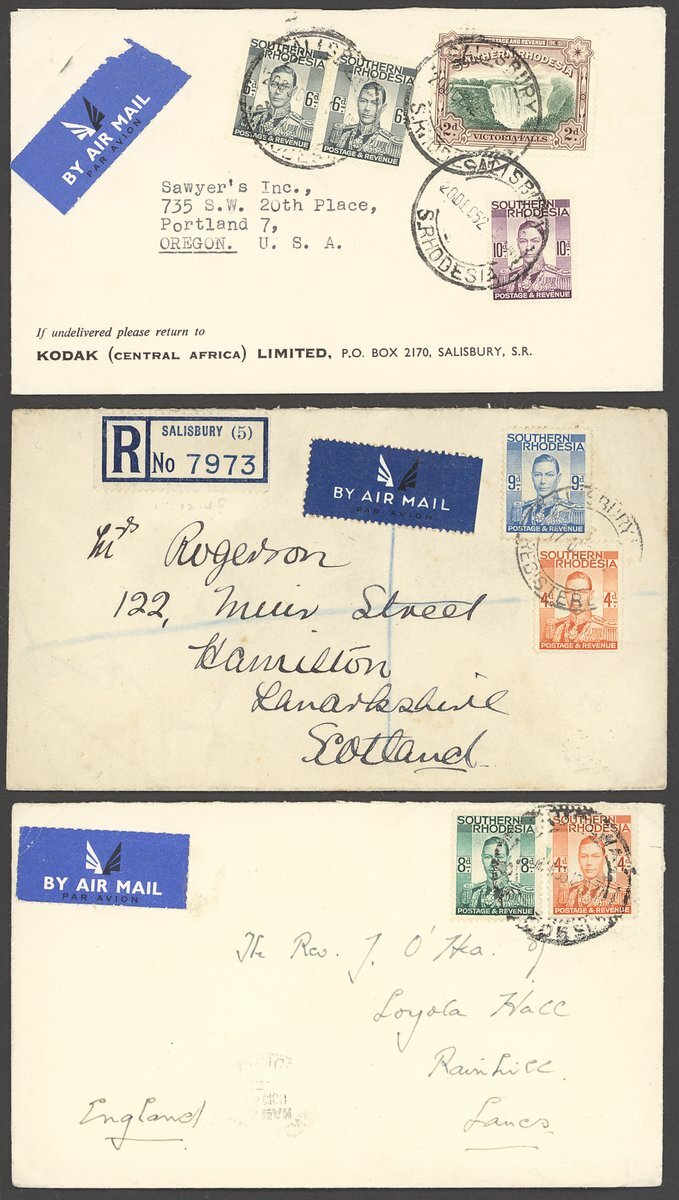 BY AIR MAIL
PAR AVION
SOUTHERN RHODESIA
6d. 6d.
POSTAGE & REVENUE
SOUTHERN RHODESIA
6d. 6d.
POSTAGE & REVENUE
POSTAGE AND REVENUE
SOUTHERN RHODESIA
2d 2d
VICTORIA FALLS
SALISBURY
SALISBURY
S.RHODESIA
SOUTHERN RHODESIA
10d. 10d.
POSTAGE & REVENUE
Sawyer's Inc.,
735 S.W. 20th Place,
Portland 7,
OREGON. U. S. A.
If undelivered please return to
KODAK (CENTRAL AFRICA) LIMITED, P.O. BOX 2170, SALISBURY, S.R.
R
SALISBURY (5)
No 7973
BY AIR MAIL
PAR AVION
SOUTHERN RHODESIA
9d. 9d.
POSTAGE & REVENUE
SOUTHERN RHODESIA
4d. 4d.
POSTAGE & REVENUE
Mrs Rogerson
122, Muir Street
Hamilton
Lanarkshire
Scotland
BY AIR MAIL
PAR AVION
SOUTHERN RHODESIA
8d. 8d.
POSTAGE & REVENUE
SOUTHERN RHODESIA
4d. 4d.
POSTAGE & REVENUE
The Rev. J. O'Hea. SJ
Loyola Hall
Rainhill
England Lancs